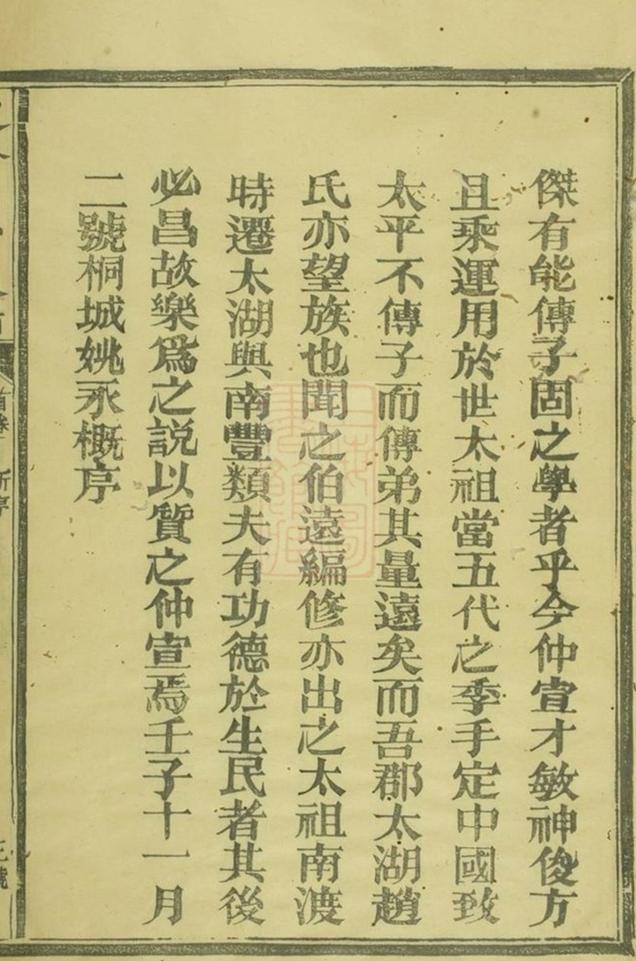 傑有能傳子固之學者乎今仲宣才敏神俊方
且乘運用於世太祖當五代之季手定中國致
太平不傳子而傳弟其量遠矣而吾郡太湖趙
氏亦望族也聞之伯遠編修亦出之太祖南渡
時遷太湖與南豐類夫有功德於生民者其後
必昌故樂爲之説以質之仲宣焉壬子十一月
二號桐城姚永概序